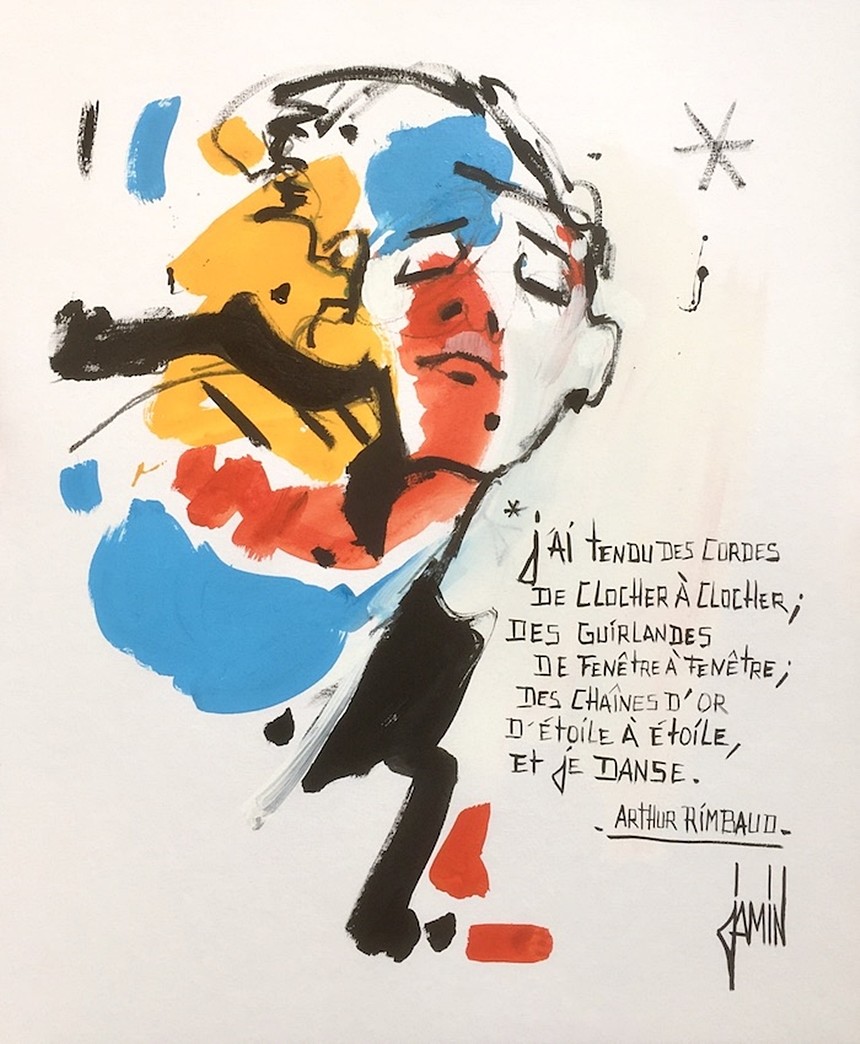 * j'ai tendu des cordes
de clocher à clocher ;
des guirlandes
de fenêtre à fenêtre ;
des chaînes d'or
d'étoile à étoile,
et je danse.
- Arthur Rimbaud -
jamin